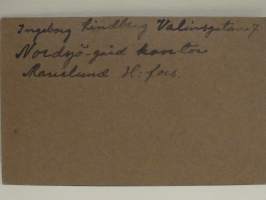 Ingeborg Lindberg Valinsgatan 7
Nordsjö-gård kontor
Marielund H:fors